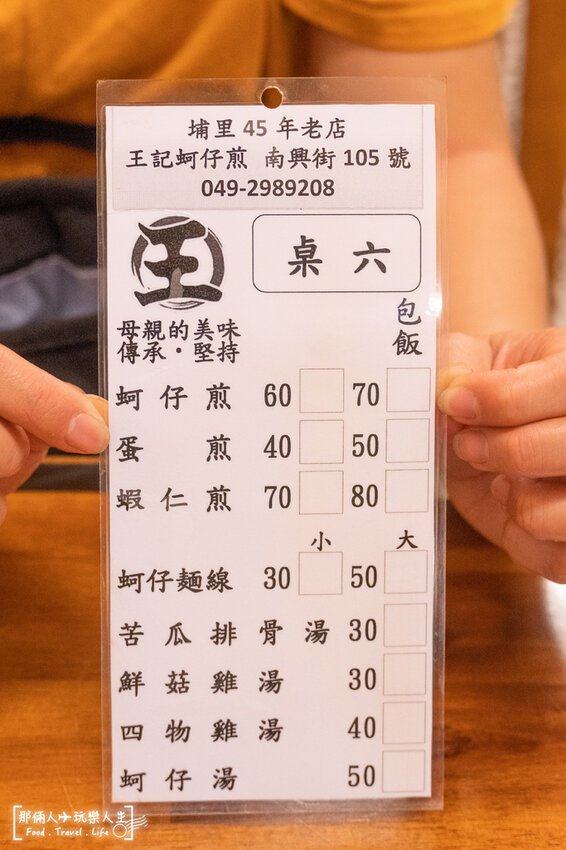 埔里 45 年老店
王記蚵仔煎 南興街 105 號
049-2989208
王
桌 六
母親的美味
傳承・堅持
包飯
蚵仔煎 60 70
蛋煎 40 50
蝦仁煎 70 80
小 大
蚵仔麵線 30 50
苦瓜排骨湯 30
鮮菇雞湯 30
四物雞湯 40
蚵仔湯 50
那倆人玩樂人生
Food . Travel . Life